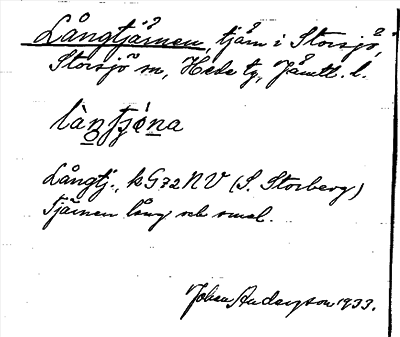 Långtjärnen, tjärn i Storsjö,
Storsjö sn, Hede tg, Jämtl. l.
làntjóna
Långtj., k G 72 NV (S. Storberg)
Tjärnen lång och smal.
Johan Anderzson 1933.